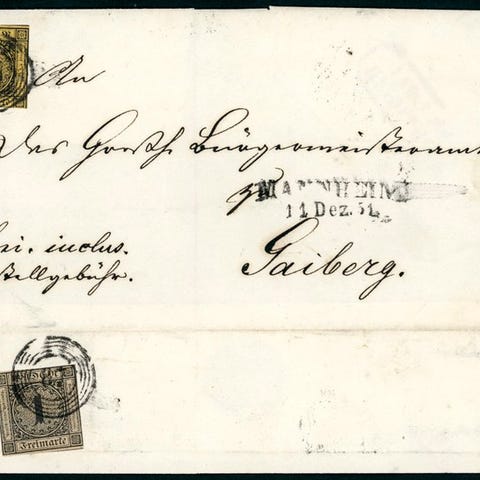 An
das Großh. Bürgermeisteramt
MANNHEIM
11 Dez. 51.
Gaiberg.
frei. inclus.
stellgebühr.
1
Freimarke